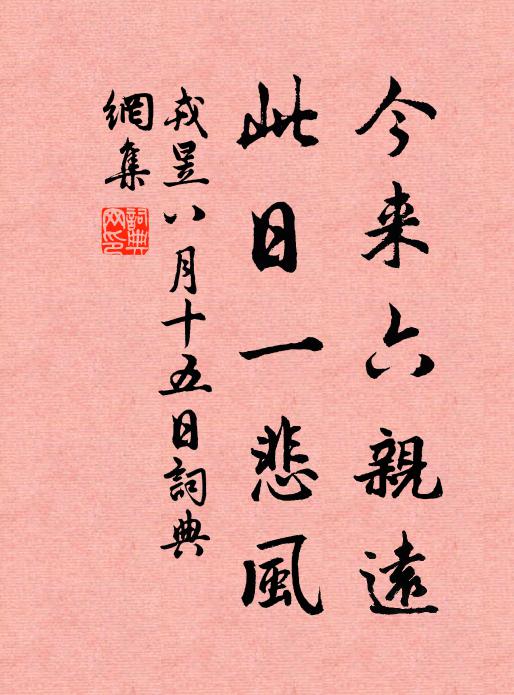 今来六親遠
此日一悲風
戎昱八月十五日詞典
網集
詞典
网印